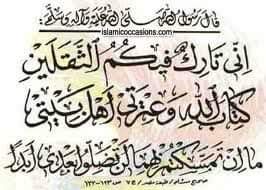 قال رسول الله صلى الله عليه وآله وسلم:
islamicoccasions.com
إني تارك فيكم الثقلين
كتاب الله وعترتي أهل بيتي
ما إن تمسكتم بهما لن تضلوا بعدي أبدا
ص ١٢٢-١٢٣